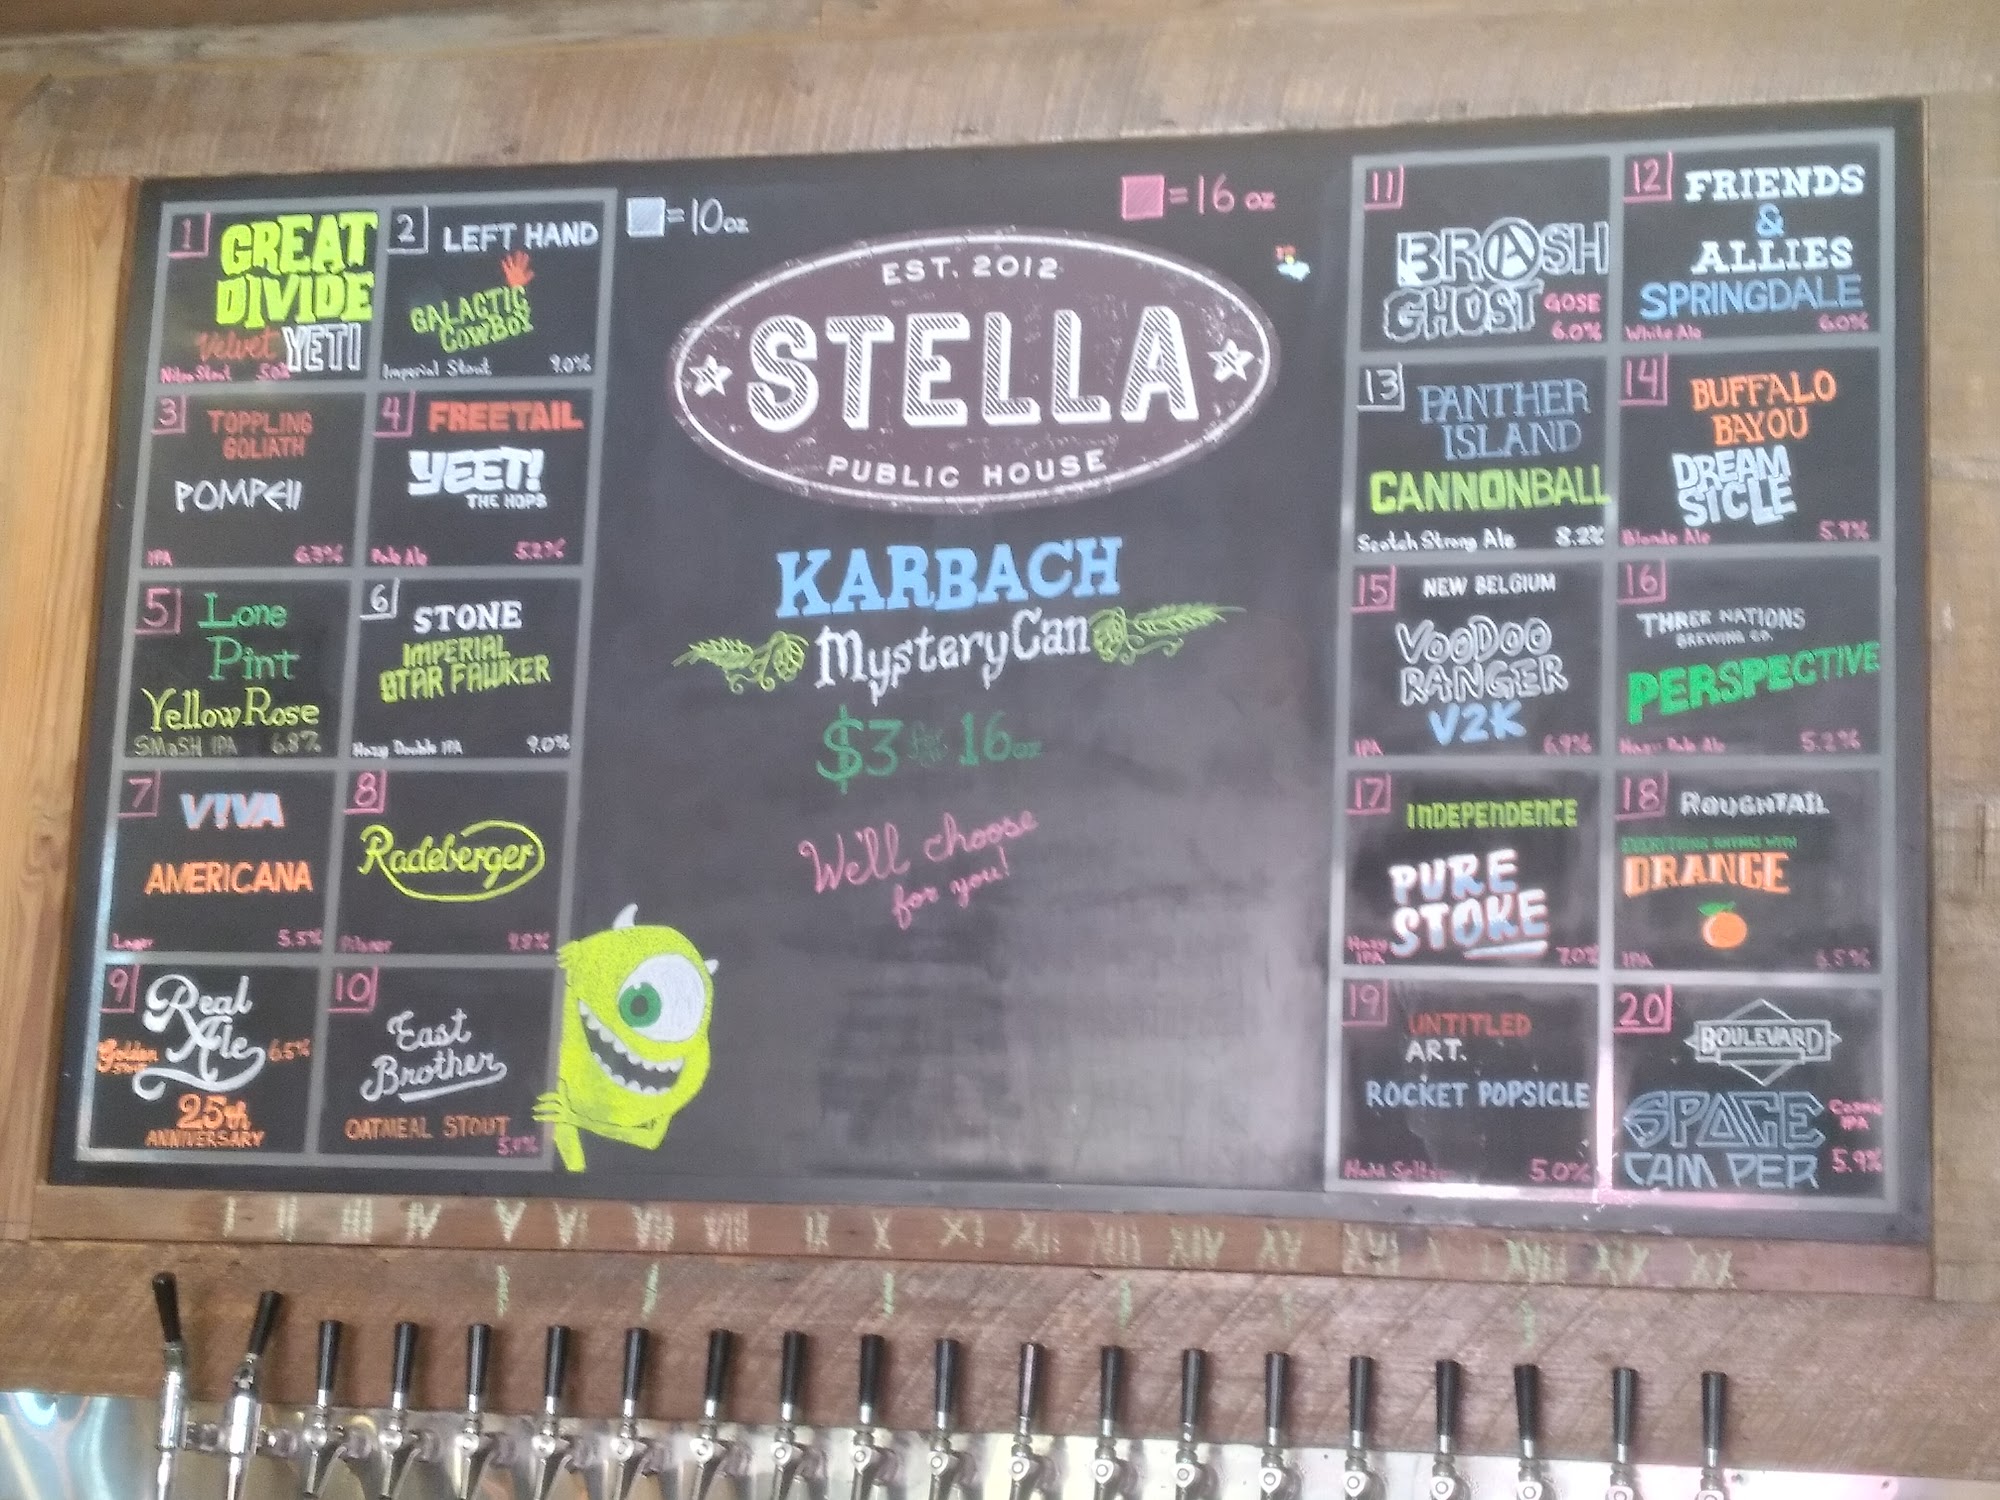 =10oz
=16 oz
EST. 2012
STELLA
PUBLIC HOUSE
KARBACH
Mystery Can
$3 for 16oz
We'll choose
for you!
1
GREAT
DIVIDE
Velvet YETI
Nitro Stout 5.0%
2
LEFT HAND
GALACTIC
COWBOY
Imperial Stout 9.0%
3
TOPPLING
GOLIATH
POMPEII
IPA 6.3%
4
FREETAIL
YEET!
THE HOPS
Pale Ale 5.2%
5
Lone
Pint
Yellow Rose
SMaSH IPA 6.8%
6
STONE
IMPERIAL
STAR FAWKER
Hazy Double IPA 9.0%
7
VIVA
AMERICANA
Lager 5.5%
8
Radeberger
Pilsner
9
Real
Ale
Golden
6.5%
25th
ANNIVERSARY
10
East
Brother
OATMEAL STOUT
11
BRASH
GHOST
GOSE
6.0%
12
FRIENDS
&
ALLIES
SPRINGDALE
White Ale 6.0%
13
PANTHER
ISLAND
CANNONBALL
Scotch Strong Ale 8.2%
14
BUFFALO
BAYOU
DREAM
SICLE
Blonde Ale
15
NEW BELGIUM
VOODOO
RANGER
V2K
IPA 6.9%
16
THREE NATIONS
BREWING CO.
PERSPECTIVE
Hazy Pale Ale 5.2%
17
INDEPENDENCE
PURE
STOKE
Hazy
IPA 7.0%
18
ROUGHTAIL
EVERYTHING RHYMES WITH
ORANGE
IPA 6.5%
19
UNTITLED
ART.
ROCKET POPSICLE
Hard Seltzer 5.0%
20
BOULEVARD
SPACE
CAMPER
Cosmic
IPA
5.9%
I II III IV V VI VII VIII IX X XI XII XIII XIV XV XVI XVIII XIX XX